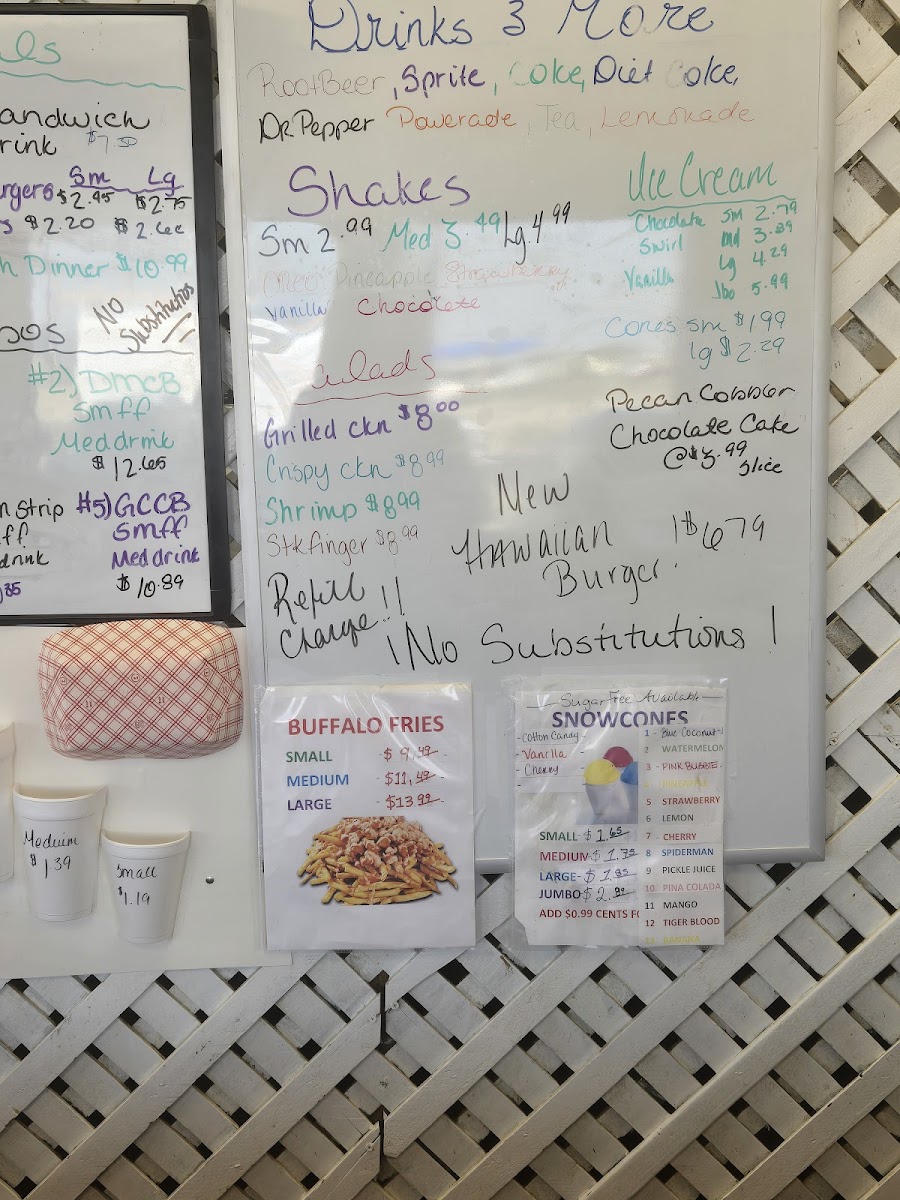 ls
andwich
rink $7.50
Sm Lg
rgers $2.45 $2.75
s $2.20 $2.60
h Dinner $10.99
os
No
Substitutios
#2) DMCB
Sm ff
Med drink
$12.65
n Strip #5) GCCB
ff Smff
drink Med drink
$10.89
Drinks & More
RootBeer, Sprite, Coke, Diet Coke,
DR. Pepper Powerade, Tea, Lemonade
Shakes
Sm 2.99 Med 3.49 Lg. 4.99
Oreo Pineapple Strawberry
Vanilla Chocolate
Ice Cream
Chocolate Sm 2.79
Swirl md 3.39
Lg 4.29
Vanilla Jbo 5.99
Cones sm $1.99
lg $2.29
Pecan Cobbler
Chocolate Cake
slice
alads
Grilled ckn $8.00
Crispy ckn $8.99
Shrimp $8.99
Stkfinger $8.99
Refill
Charge!!
New
Hawaiian $6.79
Burger.
!No Substitutions!
Meduim
$1.39
Small
$1.19
BUFFALO FRIES
SMALL - $9.49
MEDIUM - $11.49
LARGE - $13.99
Sugar Free Available
SNOWCONES
- Cotton Candy -
- Vanilla
- Cherry
SMALL- $1.65
MEDIUM- $1.75
LARGE- $1.85
JUMBO $2.00
ADD $0.99 CENTS FO
1 - Blue Coconut
2 WATERMELON
3 - PINK BUBBLE
4 PINEAPPLE
5 STRAWBERRY
6 LEMON
7 - CHERRY
8 SPIDERMAN
9 PICKLE JUICE
10 PINA COLADA
11 MANGO
12 TIGER BLOOD
13 BANANA